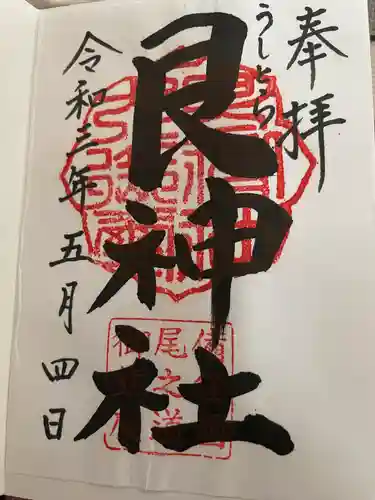 奉拝
うしとら
艮神社
令和三年五月四日
備
尾之道
御